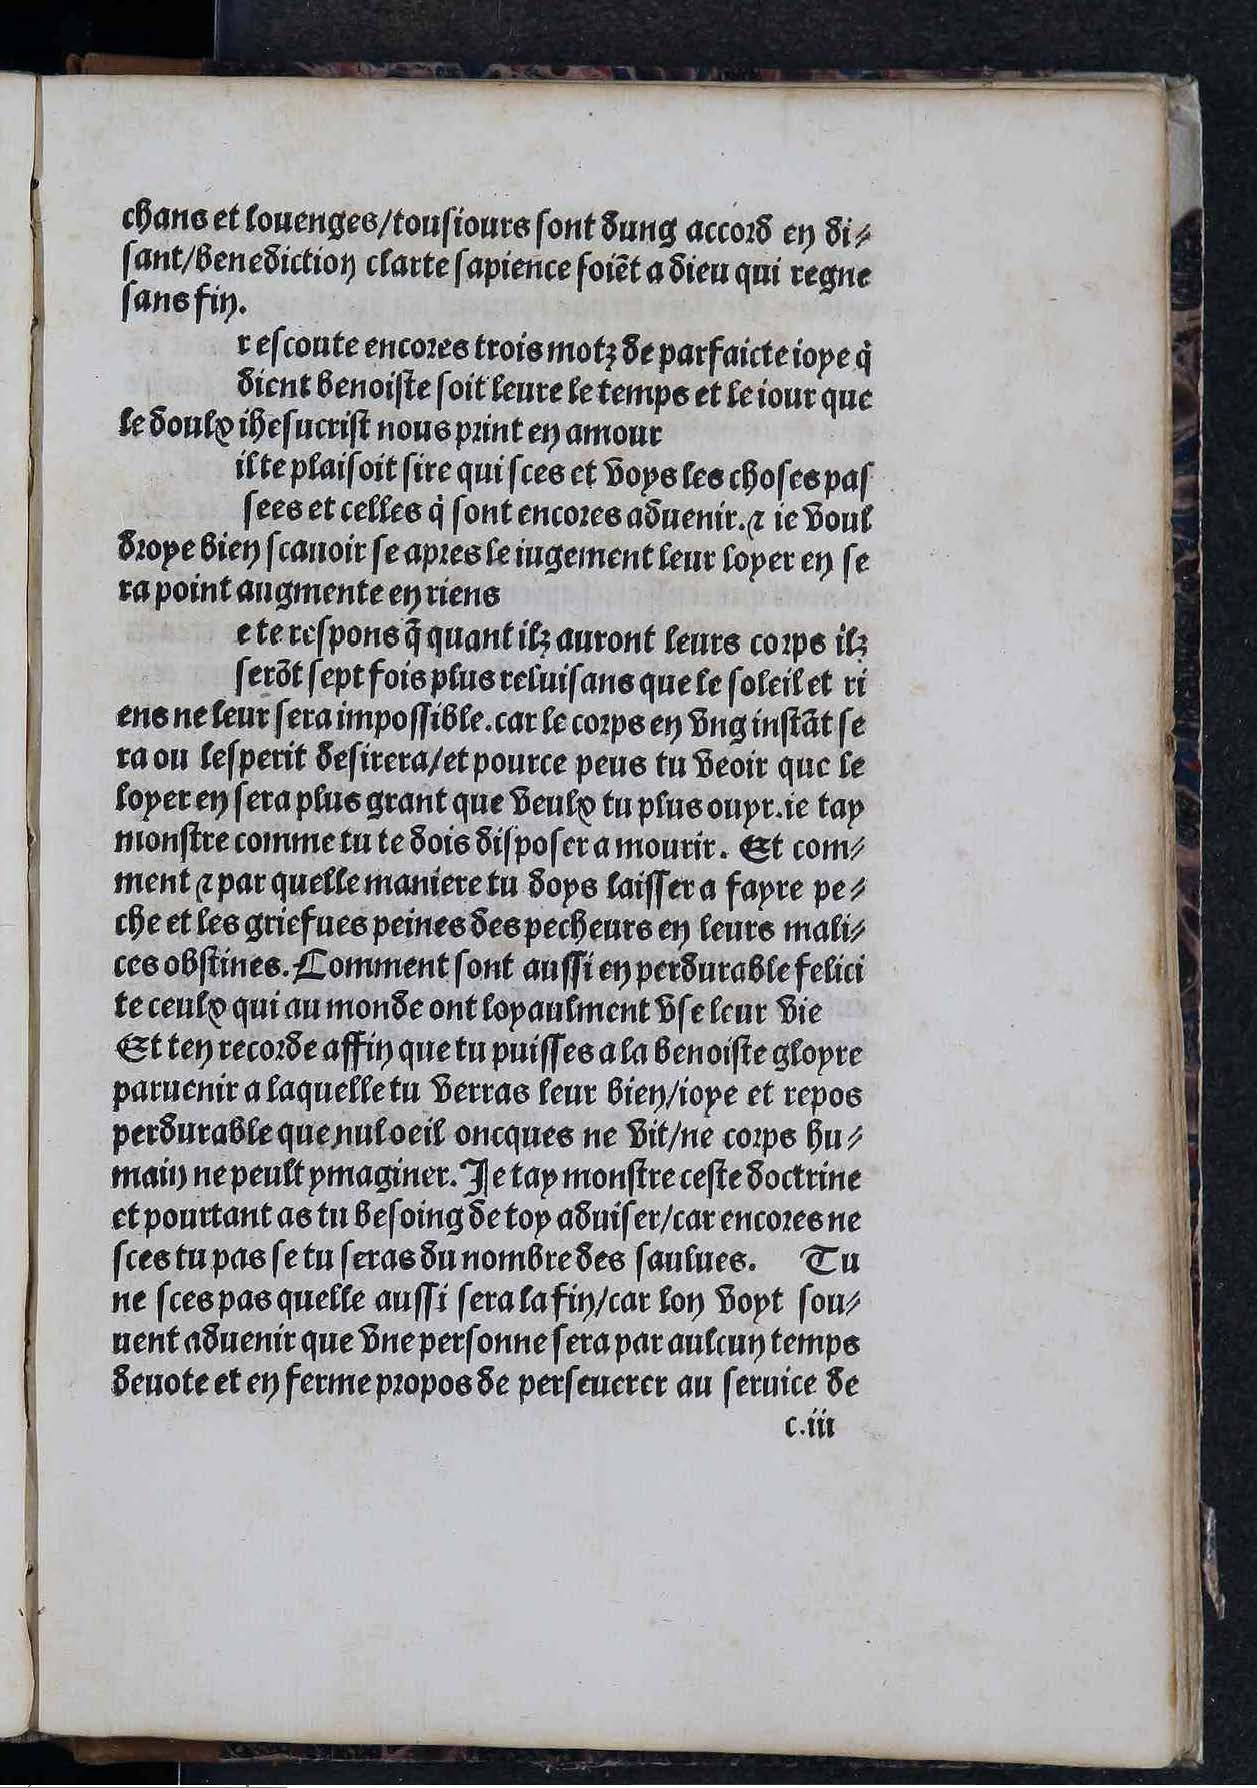 chans et louenges/tousiours sont dung accord en di⸗
sant/benediction clarte sapience soiēt a dieu qui regne
sans fin.
r escoute encores trois motz de parfaicte ioye q̇
dient benoiste soit leure le temps et le iour que
le doulx ihesucrist nous print en amour
il te plaisoit sire qui sces et voys les choses pas
sees et celles q̇ sont encores advenir.⁊ ie voul
droye bien scauoir se apres le iugement leur loyer en se
ra point augmente en riens
e te respons q̄ quant ilz auront leurs corps ilz
serōt sept fois plus reluisans que le soleil et ri
ens ne leur sera impossible.car le corps en vng instāt se
ra ou lesperit desirera/et pource peus tu veoir que le
loyer en sera plus grant que veulx tu plus ouyr.ie tay
monstre comme tu te dois disposer a mourir. Et com⸗
ment ⁊ par quelle maniere tu doys laisser a fayre pe⸗
che et les griefues peines des pecheurs en leurs mali⸗
ces obstines.Comment sont aussi en perdurable felici
te ceulx qui au monde ont loyaulment vse leur vie
Et ten recorde affin que tu puisses a la benoiste gloyre
paruenir a laquelle tu verras leur bien/ioye et repos
perdurable que nul oeil oncques ne vit/ne corps hu⸗
main ne peult ymaginer.Je tay monstre ceste doctrine
et pourtant as tu besoing de toy aduiser/car encores ne
sces tu pas se tu seras du nombre des saulues. Tu
ne sces pas quelle aussi sera la fin/car lon voyt sou⸗
uent aduenir que vne personne sera par aulcun temps
deuote et en ferme propos de perseuerer au seruice de
c.iii